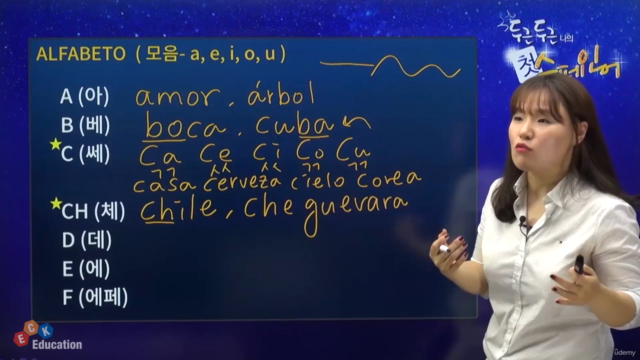 두근두근 나의
첫 스페인어
ALFABETO ( 모음- a, e, i, o, u )
A (아) amor, árbol
B (베) boca, Cuba
C (쎄) Ca Ce Ci Co Cu
ㄱㄱ ㅅㅅ ㅆ ㄲ ㄱㄱ
casa cerveza cielo corea
CH (체) chile, che guevara
D (데)
E (에)
F (에페)
ECK
Education
udemy